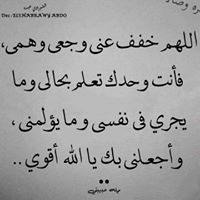 اللهم خفف عنى وجعى وهمى،
فأنت وحدك تعلم بحالى وما
يجري فى نفسى وما يؤلمنى،
وأجعلنى بك يا الله أقوي ..